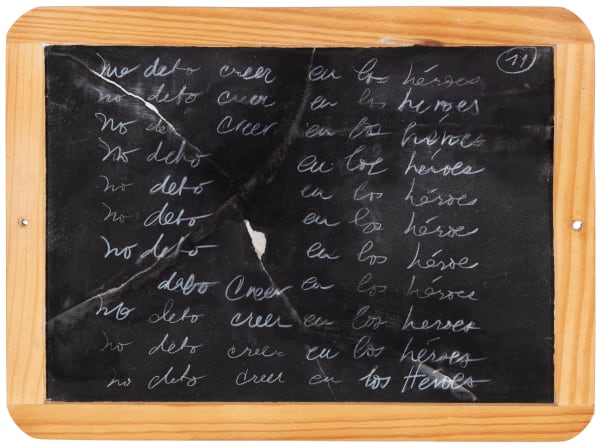 no debo creer en los héroes 11
no debo creer en los heroes
no debo creer en los héroes
no debo en los héroes
no debo en los héroes
no debo en los héroe
no debo en los héroe
debo creer en los héroes
no debo creer en los heroes
no debo creer en los héroes
no debo creer en los Héroes